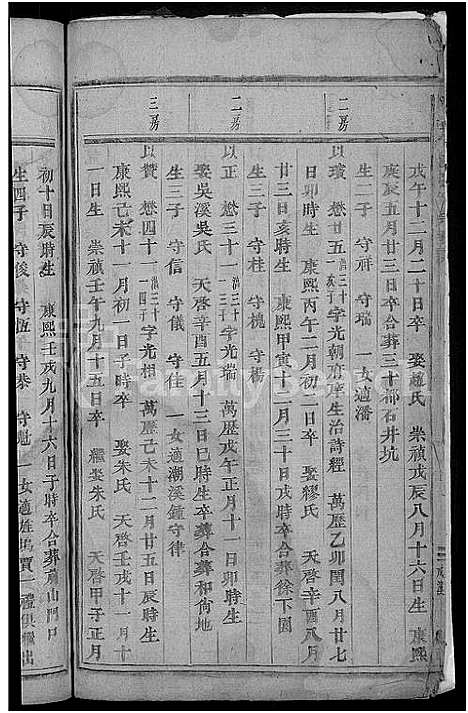 戊午十二月二十日卒　娶趙氏　崇禎戊辰八月十六日生　康熙
庚辰五月廿三日卒合葬三十都石井坑
生二子　守祥　守瑞　一女適潘
二房
以璸　懋廿五　消三十　字光朝京庠生治詩經　萬歷乙卯閏八月廿七
日卯時生　康熙丙午二月初二日卒　娶繆氏　天啓辛酉八月
廿三日亥時生　康熙甲寅十二月三十日戌時卒合葬餘下園
生三子　守桂　守槐　守楊
二房
以正　懋三十一　消三十一四子　字光瑞　萬歷戊午正月十一日卯時生
娶吳溪吳氏　天啓辛酉五月十三日巳時生卒葬合葬和尙地
生三子　守信　守儀　守佳　一女適潮溪鍾守律
三房
以贊　懋四十一　消三十一四子　字光相　萬歷己未十一月廿五日辰時生
康熙己未十一月初一日子時卒　娶朱氏　天啓壬戌十一月十
一日生　崇禎壬午九月十五日卒　繼娶朱氏　天啓甲子正月
初十日辰時生　康熙壬戌九月十六日子時卒合葬前山門口
生四子　守俊　守恆　守恭　守魁　一女適